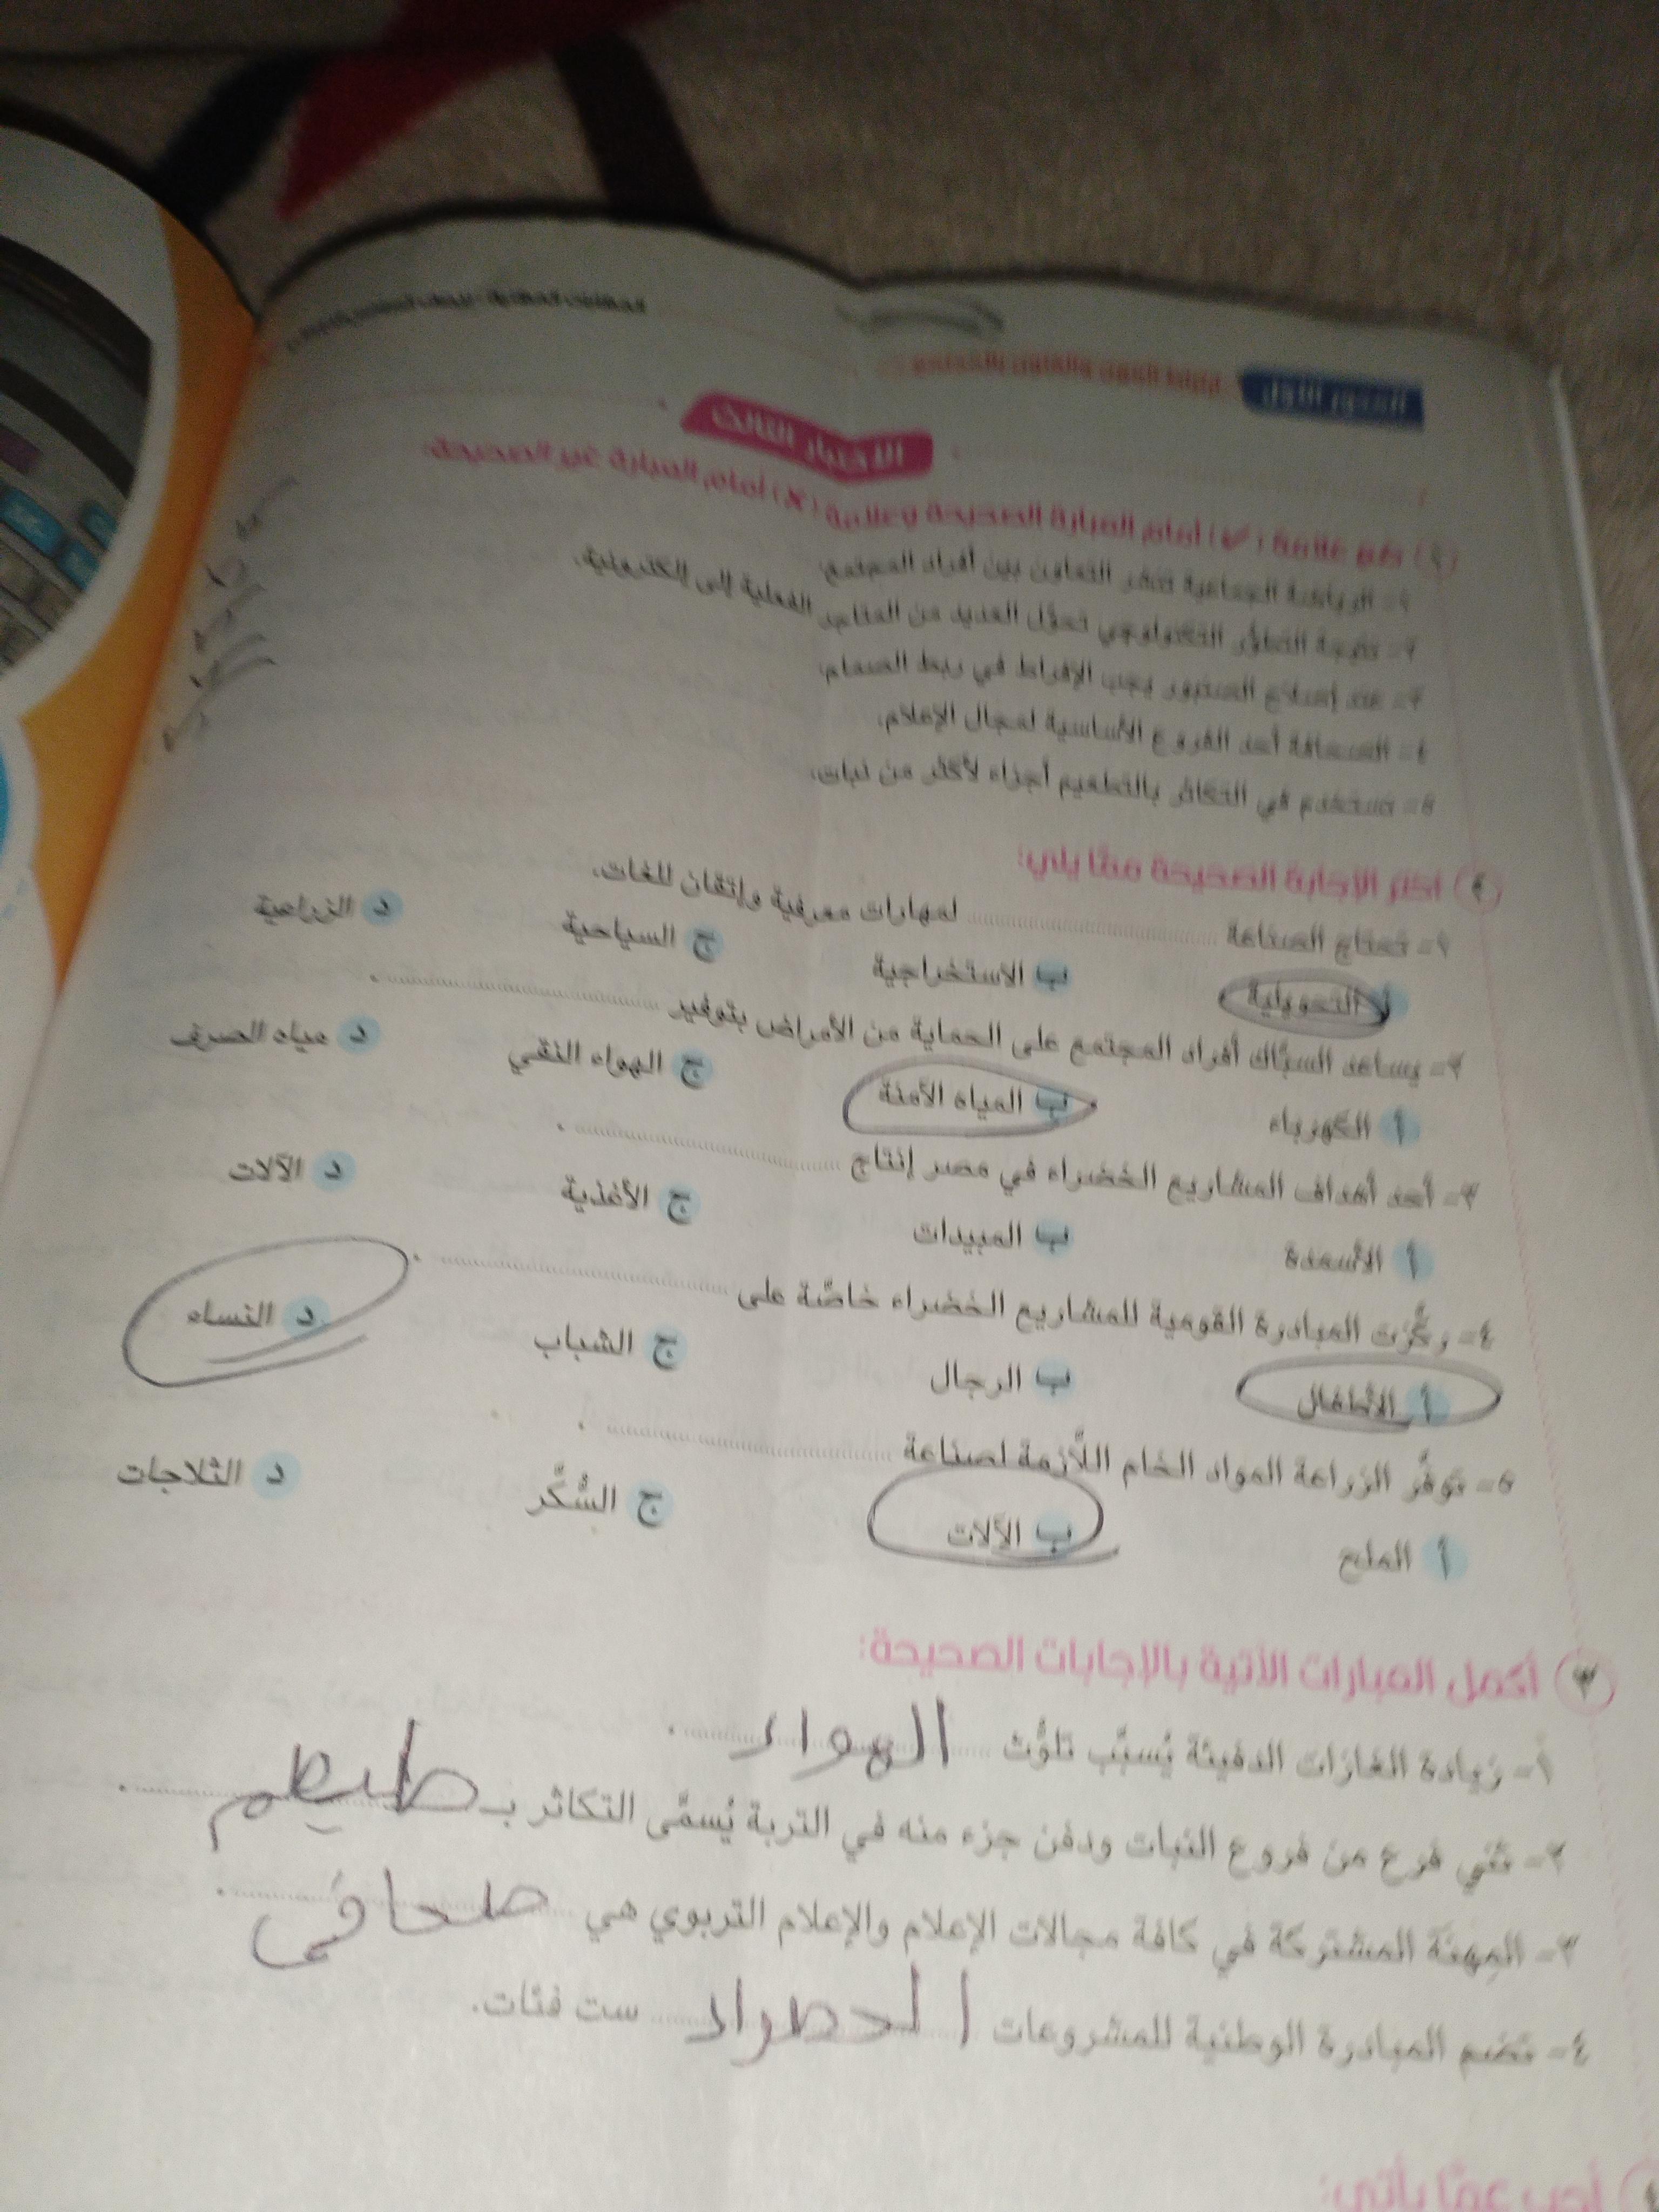 المحور الأول
الاختبار الثالث
١ ضع علامة (✔) أمام العبارة الصحيحة وعلامة (✘) أمام العبارة غير الصحيحة:
١- الرياضة الجماعية تنشر التعاون بين أفراد المجتمع.
٢- نتيجة التطوُّر التكنولوجي تحوَّل العديد من المتاجر الفعلية إلى إلكترونية.
٣- عند إصلاح الصنبور يجب الإفراط في ربط الصمام.
٤- الصحافة أحد الفروع الأساسية لمجال الإعلام.
٥- نستخدم في التكاثر بالتطعيم أجزاء لأكثر من نبات.
٢ اختر الإجابة الصحيحة ممَّا يلي:
١- تحتاج الصناعة ........ لمهارات معرفية وإتقان للغات.
أ التحويلية ب الاستخراجية ج السياحية د الزراعية
٢- يساعد السبَّاك أفراد المجتمع على الحماية من الأمراض بتوفير ........ .
أ الكهرباء ب المياه الآمنة ج الهواء النقي د مياه الصرف
٣- أحد أهداف المشاريع الخضراء في مصر إنتاج ........ .
أ الأسمدة ب المبيدات ج الأغذية د الآلات
٤- ركَّزت المبادرة القومية للمشاريع الخضراء خاصَّة على ........ .
أ الأطفال ب الرجال ج الشباب د النساء
٥- توفِّر الزراعة المواد الخام اللَّازمة لصناعة ........ .
أ الملح ب الآلات ج السُّكَّر د الثلاجات
٣ أكمل العبارات الآتية بالإجابات الصحيحة:
١- زيادة الغازات الدفيئة يُسبِّب تلوُّث الهواء .
٢- ثني فرع من فروع النبات ودفن جزء منه في التربة يُسمَّى التكاثر بـ .
٣- المِهنَة المشتركة في كافة مجالات الإعلام والإعلام التربوي هي صحافى .
٤- تضم المبادرة الوطنية للمشروعات ست فئات.
أجب عمَّا يأتي: